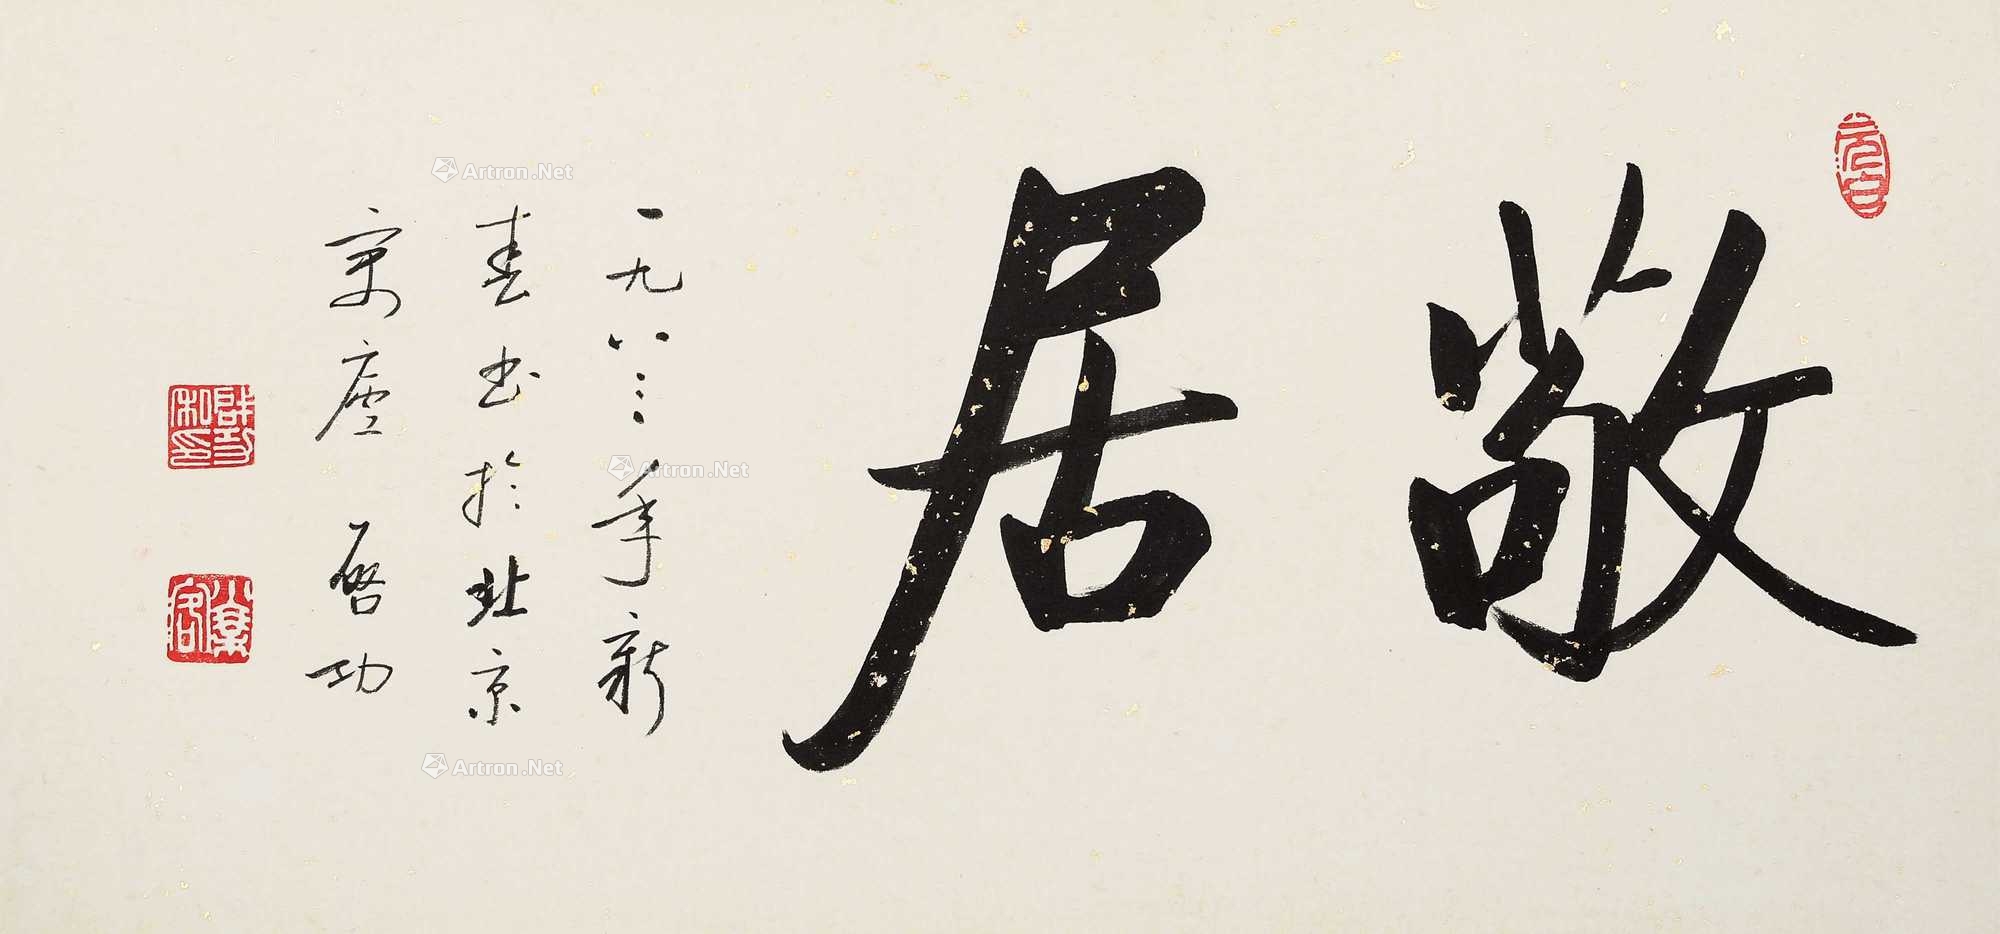 元白
敞居
一九八三年新
春书於北京
寓 啓功
啟功私印
Artron.Net
Artron.Net
Artron.Net